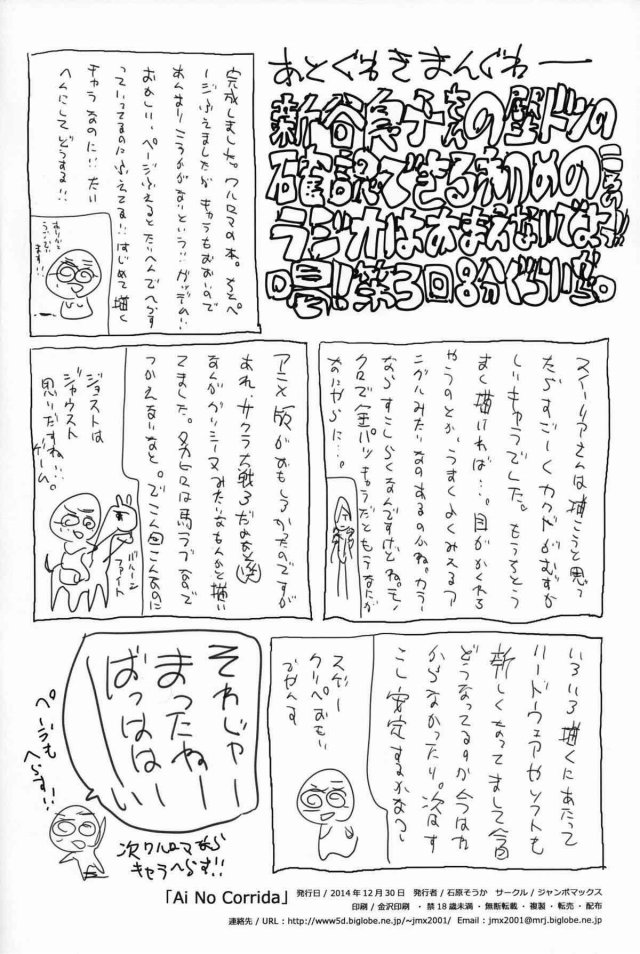 あとぐわきまんぐわー
新谷良子さんの壁ドンの
確認できる初めの
ラジオはあまえないでよっ!!
喝!!第3回8分ぐらい。
完成しました。クルロマの本。ちとペ
ージふえましたが キャラもおおいので
あんまりこうかがないという!! ガッデム!!
おかしい、ページふえるとたいへんでへらす
っていってるのにふえてる!! はじめて描く
キャラなのに!! たい
へんにしてどうする!!
ありがとう
ございます!!
スイーリアさんは描こうと思っ
たらすごーくカクドがむずか
しいキャラでした。もうちとう
まく描ければ…。目がかくれる
やうのとか、うすくよくみえるア
ングルみたいなのあるのかね。カラー
ならすこしらくなんですけどね。モノ
クロで金パツキャラだともうなにが
なにやらに…。
アニメ版がおもしろかったのですが
あれ、サクラ大戦
なんか みたいなもんかと描い
てました。タカヒロは馬ラブなので
つかえないなと。でこん回こんなのに
ジョストは
ジャウスト
思いだすね…
ゲーム。
バルーン
ファイト
いろいろ描くにあたって
ハードウェアやソフトも
新しくなってまして今回
どうなってるか今はわ
からなかったり。次はす
こし安定するかなっ〜
スゲー
クリペおもい
でやんす
それじゃー
まったねー
ばっははーい
ページも
へらす!!
次クルロマなら
キャラへらす!!
「Ai No Corrida」 発行日 / 2014年12月30日 発行者 / 石原そうか サークル / ジャンボマックス
印刷 / 金沢印刷 ・禁18歳未満・無断転載・複製・転売・配布
連絡先 / URL : http://www5d.biglobe.ne.jp/~jmx2001/ Email : jmx2001@mrj.biglobe.ne.jp